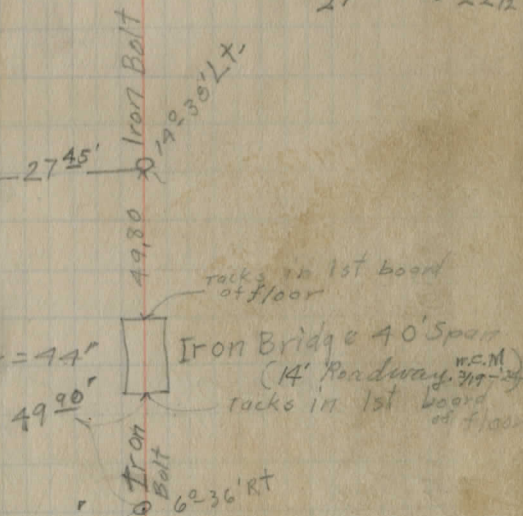 Iron Bolt
14º 30' Lt.
27 45'
49,80
tacks in 1st board
of floor
Iron Bridge 40' Span
(14' Roadway. W.C.M
= 44'
49 90'
tacks in 1st board
of floor
Iron
Bolt
6º 36' Rt